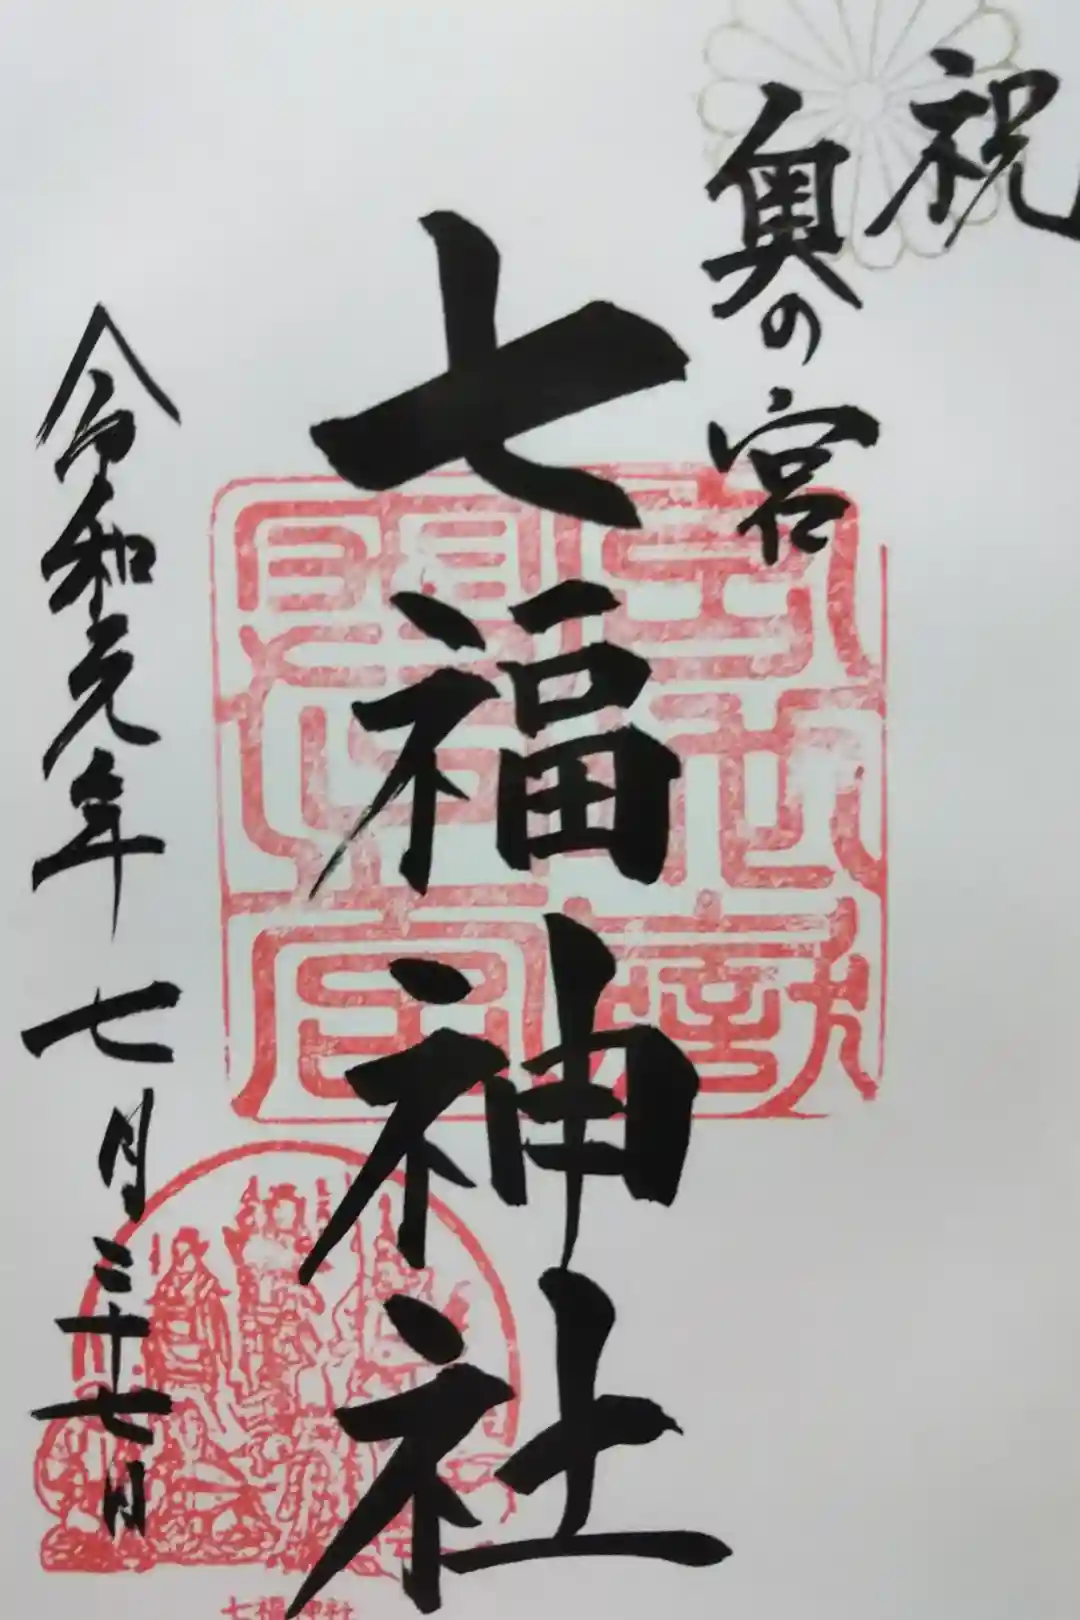 祝
奥の宮
七福神社
令和元年 七月二十七日
七福神社